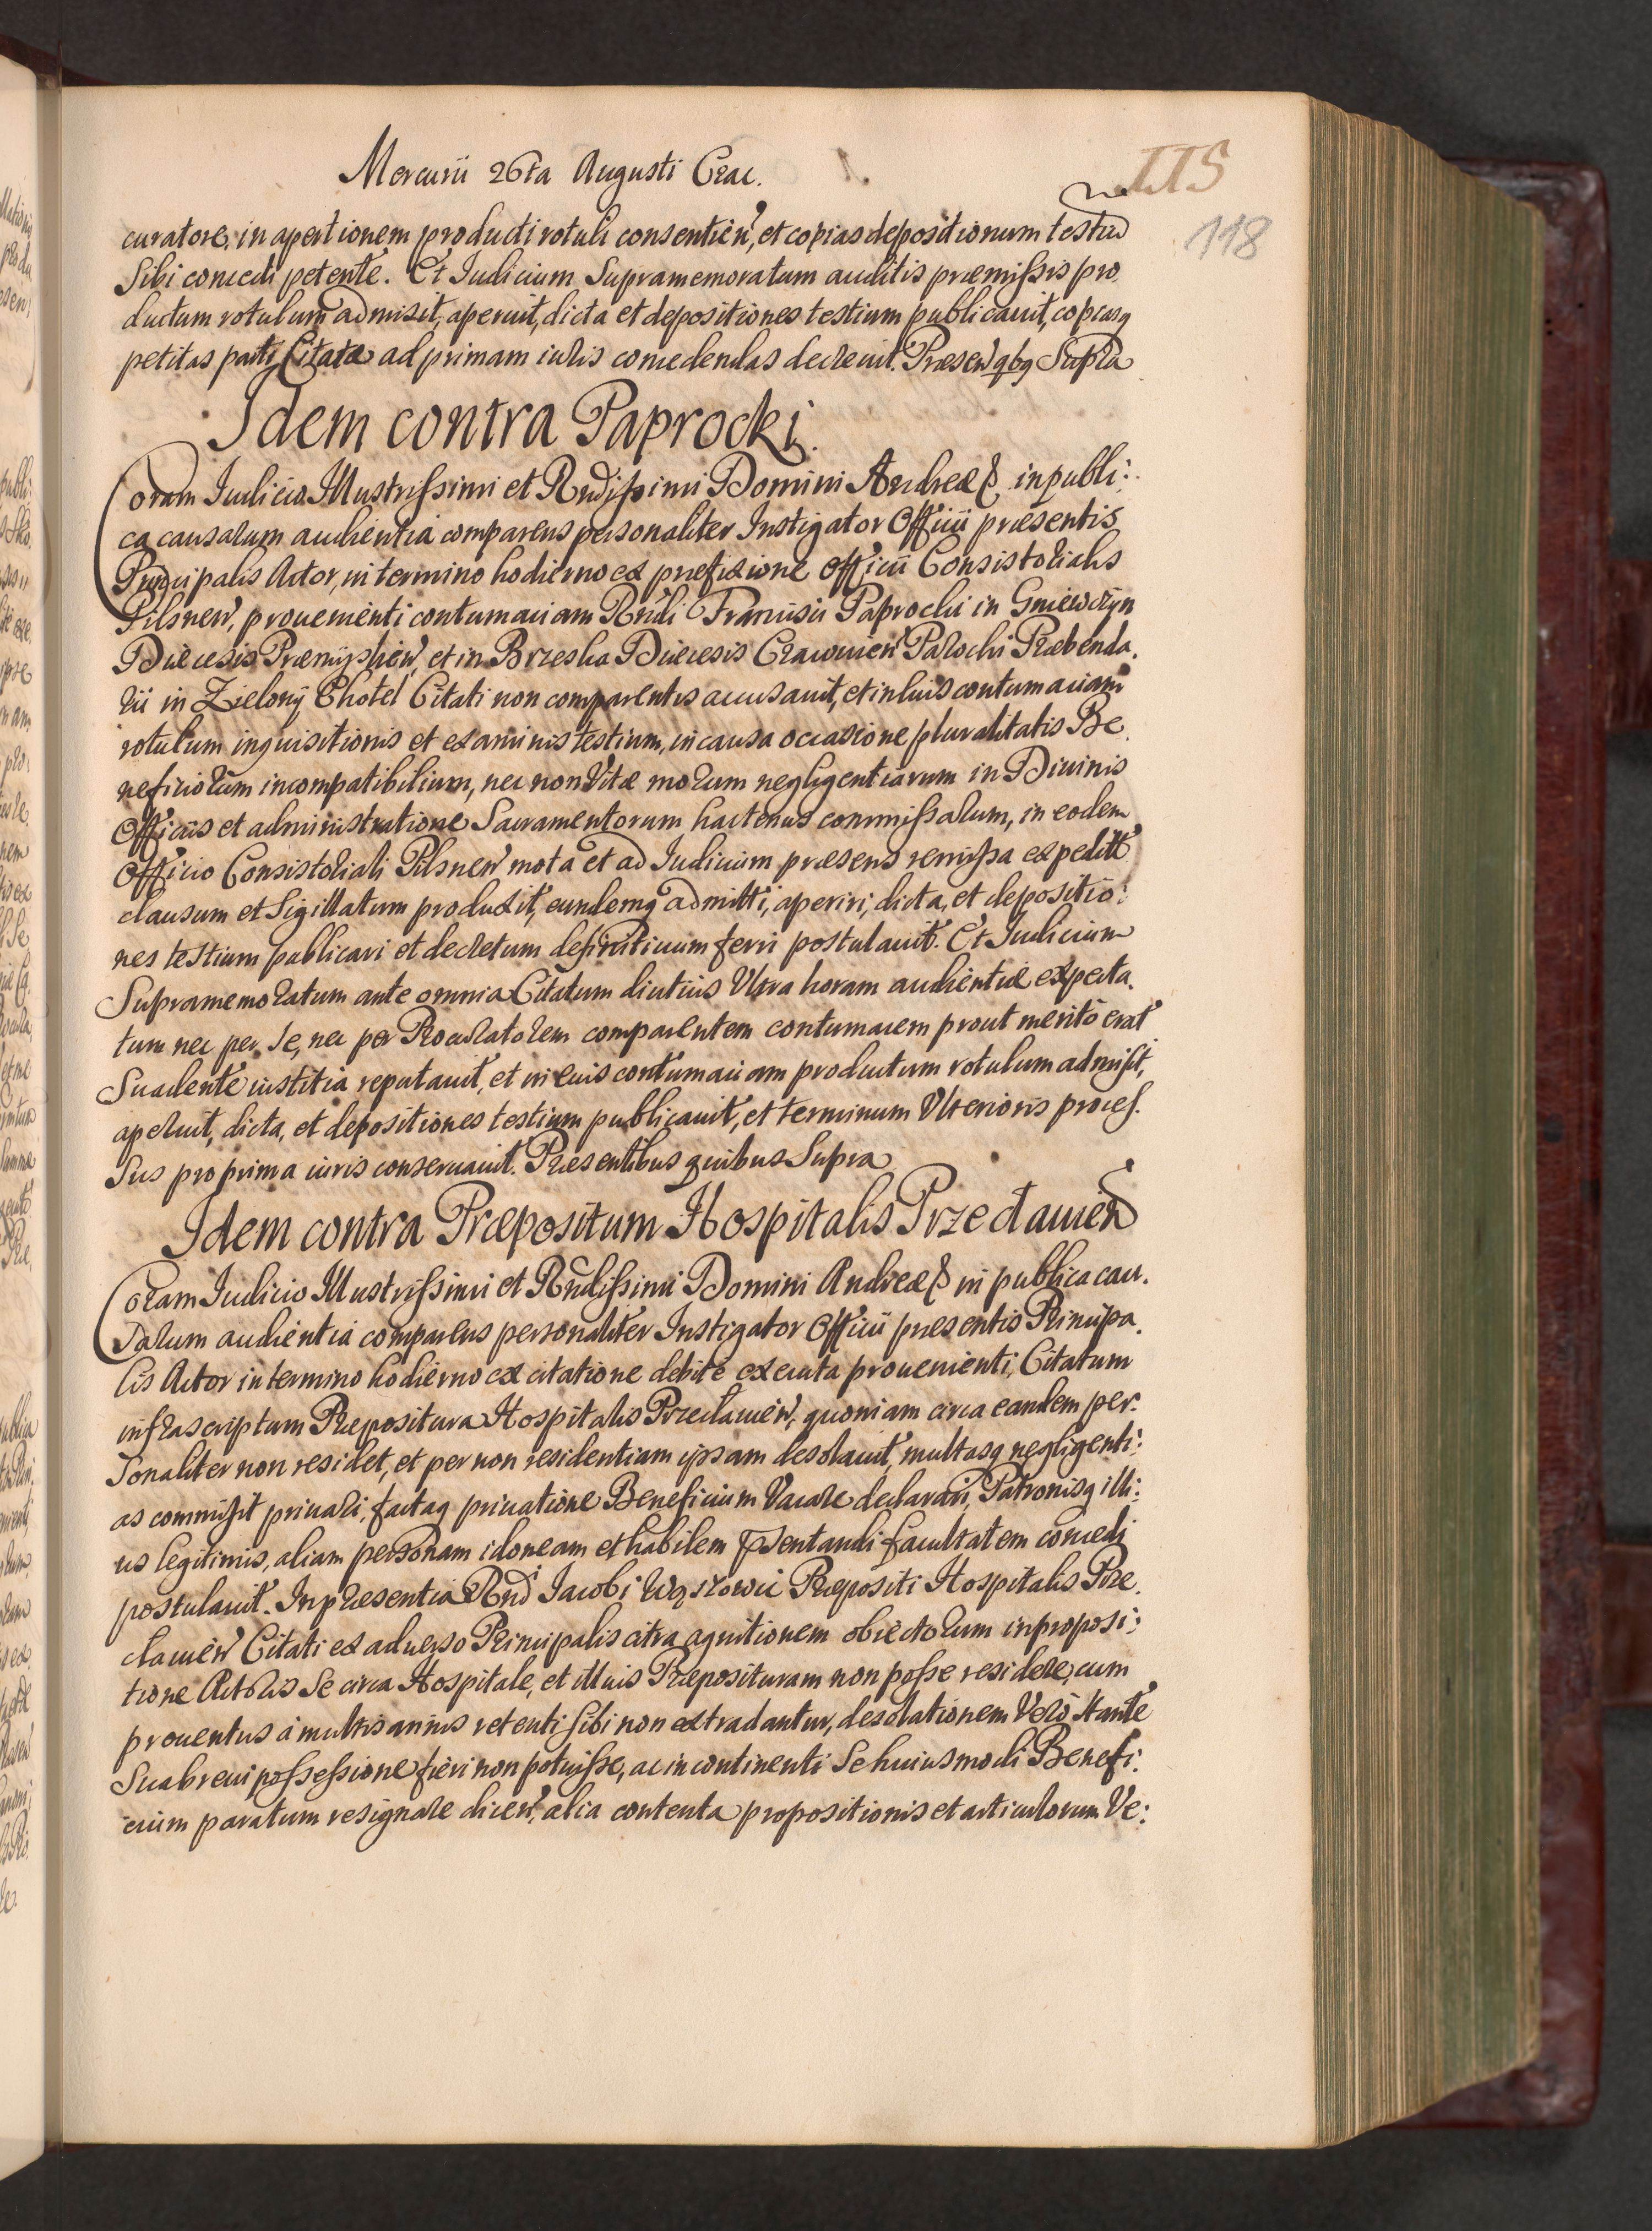 Mercurii 26ta Augusti Crac.
115
118
curatore, in apertionem producti rotuli consentien, et copias depositionum testiu
Sibi concedi petente. Et Iudicium Supramemoratum auditis præmissis pro
ductum rotulum admisit, aperuit, dicta et depositiones testium publicauit, copiasq
petitas parti Citatæ ad primam iuris concedendas decreuit. Præsen qbq Supra
Idem contra Paprocki.
Coram Iudicio Illustrissimi et Rndissimi Domini Andreæ in publi:
ca causarum audientia comparens personaliter Instigator Officii præsentis
Principalis Actor, in termino hodierno ex præfixione Officii Consistorialis
Pilsnen, prouenienti contumaciam Rndi Francisci Paprocki in Gniewczyn
Diæcesis Præmyslien, et in Brzeska Diæcesis Cracouien Parochi Præbenda.
rii in Zielony Chotel Citati non comparentis accusauit, et in huius contumaciam
rotulum inquisitionis et examinis testium, in causa occasione pluralitatis Be
neficiorum incompatibilium, nec non Vitæ morum negligentiarum in Diuinis
Officiis et administratione Sacramentorum hactenus commissarum, in eodem
Officio Consistoriali Pilsnen mota et ad Iudicium præsens remissa expedite
clausum et Sigillatum produxit, eundemq admitti, aperiri, dicta, et depositio:
nes testium publicari et decretum definitiuum ferri postulauit. Et Iudicium
Supramemoratum ante omnia Citatum diutius Ultra horam audientiæ expecta.
tum nec per se, nec per Procuratorem comparentem contumacem prout merito erat
Suadente iustitia reputauit, et in euis contumaciam productum rotulum admisit,
aperuit, dicta, et depositiones testium publicauit, et terminum Ulterioris proces.
sus pro prima iuris conseruauit. Præsentibus quibus Supra
Idem contra Præpositum Hospitalis Przecłauien
Coram Iudicio Illustrissimi et Rndissimi Domini Andreæ in publica cau.
sarum audientia comparens personaliter Instigator Officii præsentis Principa.
lis Actor in termino hodierno ex citatione debite executa prouenienti, Citatum
infrascriptum Præpositura Hospitalis Przecłauien, quoniam circa eandem per.
sonaliter non residet, et per non residentiam ipsam desolauit, multasq negligenti:
as commisit priuari, factaq priuatione Beneficium Vacare declarari, Patronisq illi:
us legitimis, aliam personam idoneam et habilem præsentandi facultatem concedi
postulauit. In præsentia Rnd Iacobi Præpositi Hospitalis Prze
cłauien Citati ex aduerso Principalis citra agnitionem obiectorum in proposi:
tione Actoris Se circa Hospitale, et illius Præposituram non posse residere, cum
prouentus à multis annis retenti sibi non extradantur, desolationem Verò stante
Sua breui possessione fieri non potuisse, ac in continenti Se huiusmodi Benefi:
cium paratum resignare dicen, alia contenta propositionis et articulorum Ve: